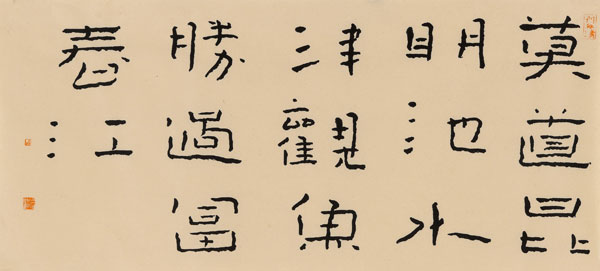 莫道昆
明池水
津觀魚
勝過富
春江